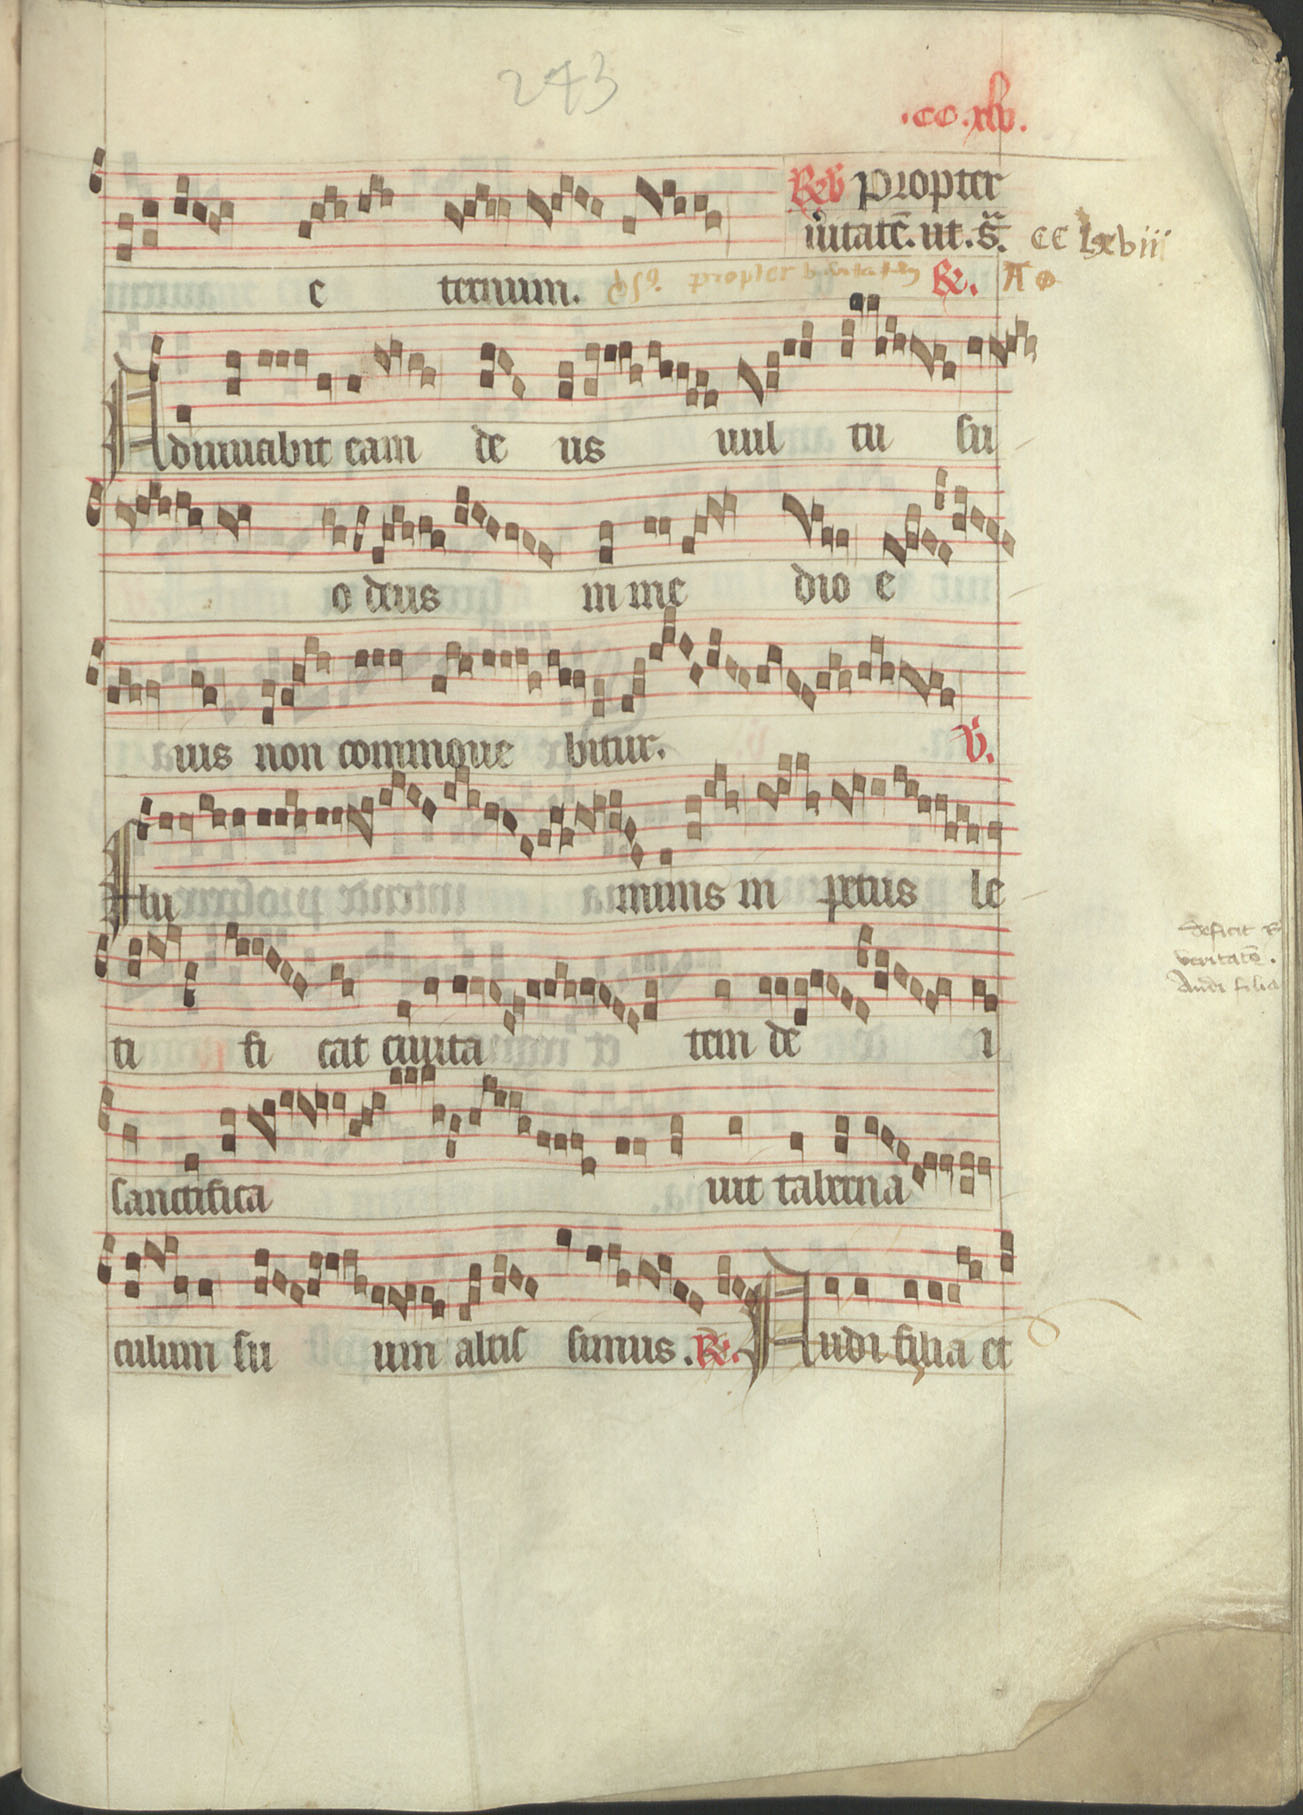 243
.cc.xlv.
R&V propter
ueritatē. ut. s̄. cc lxviii
e ternum. propter veritatem R.
Adiuuabit eam de us uul tu su
o deus in me dio e
ius non commoue bitur. V.
Flu minis in petus le
ti fi cat ciuita tem de i
deficit R
veritatē.
Audi filia
sanctifica uit taberna
culum su um altis simus. R. Audi filia et